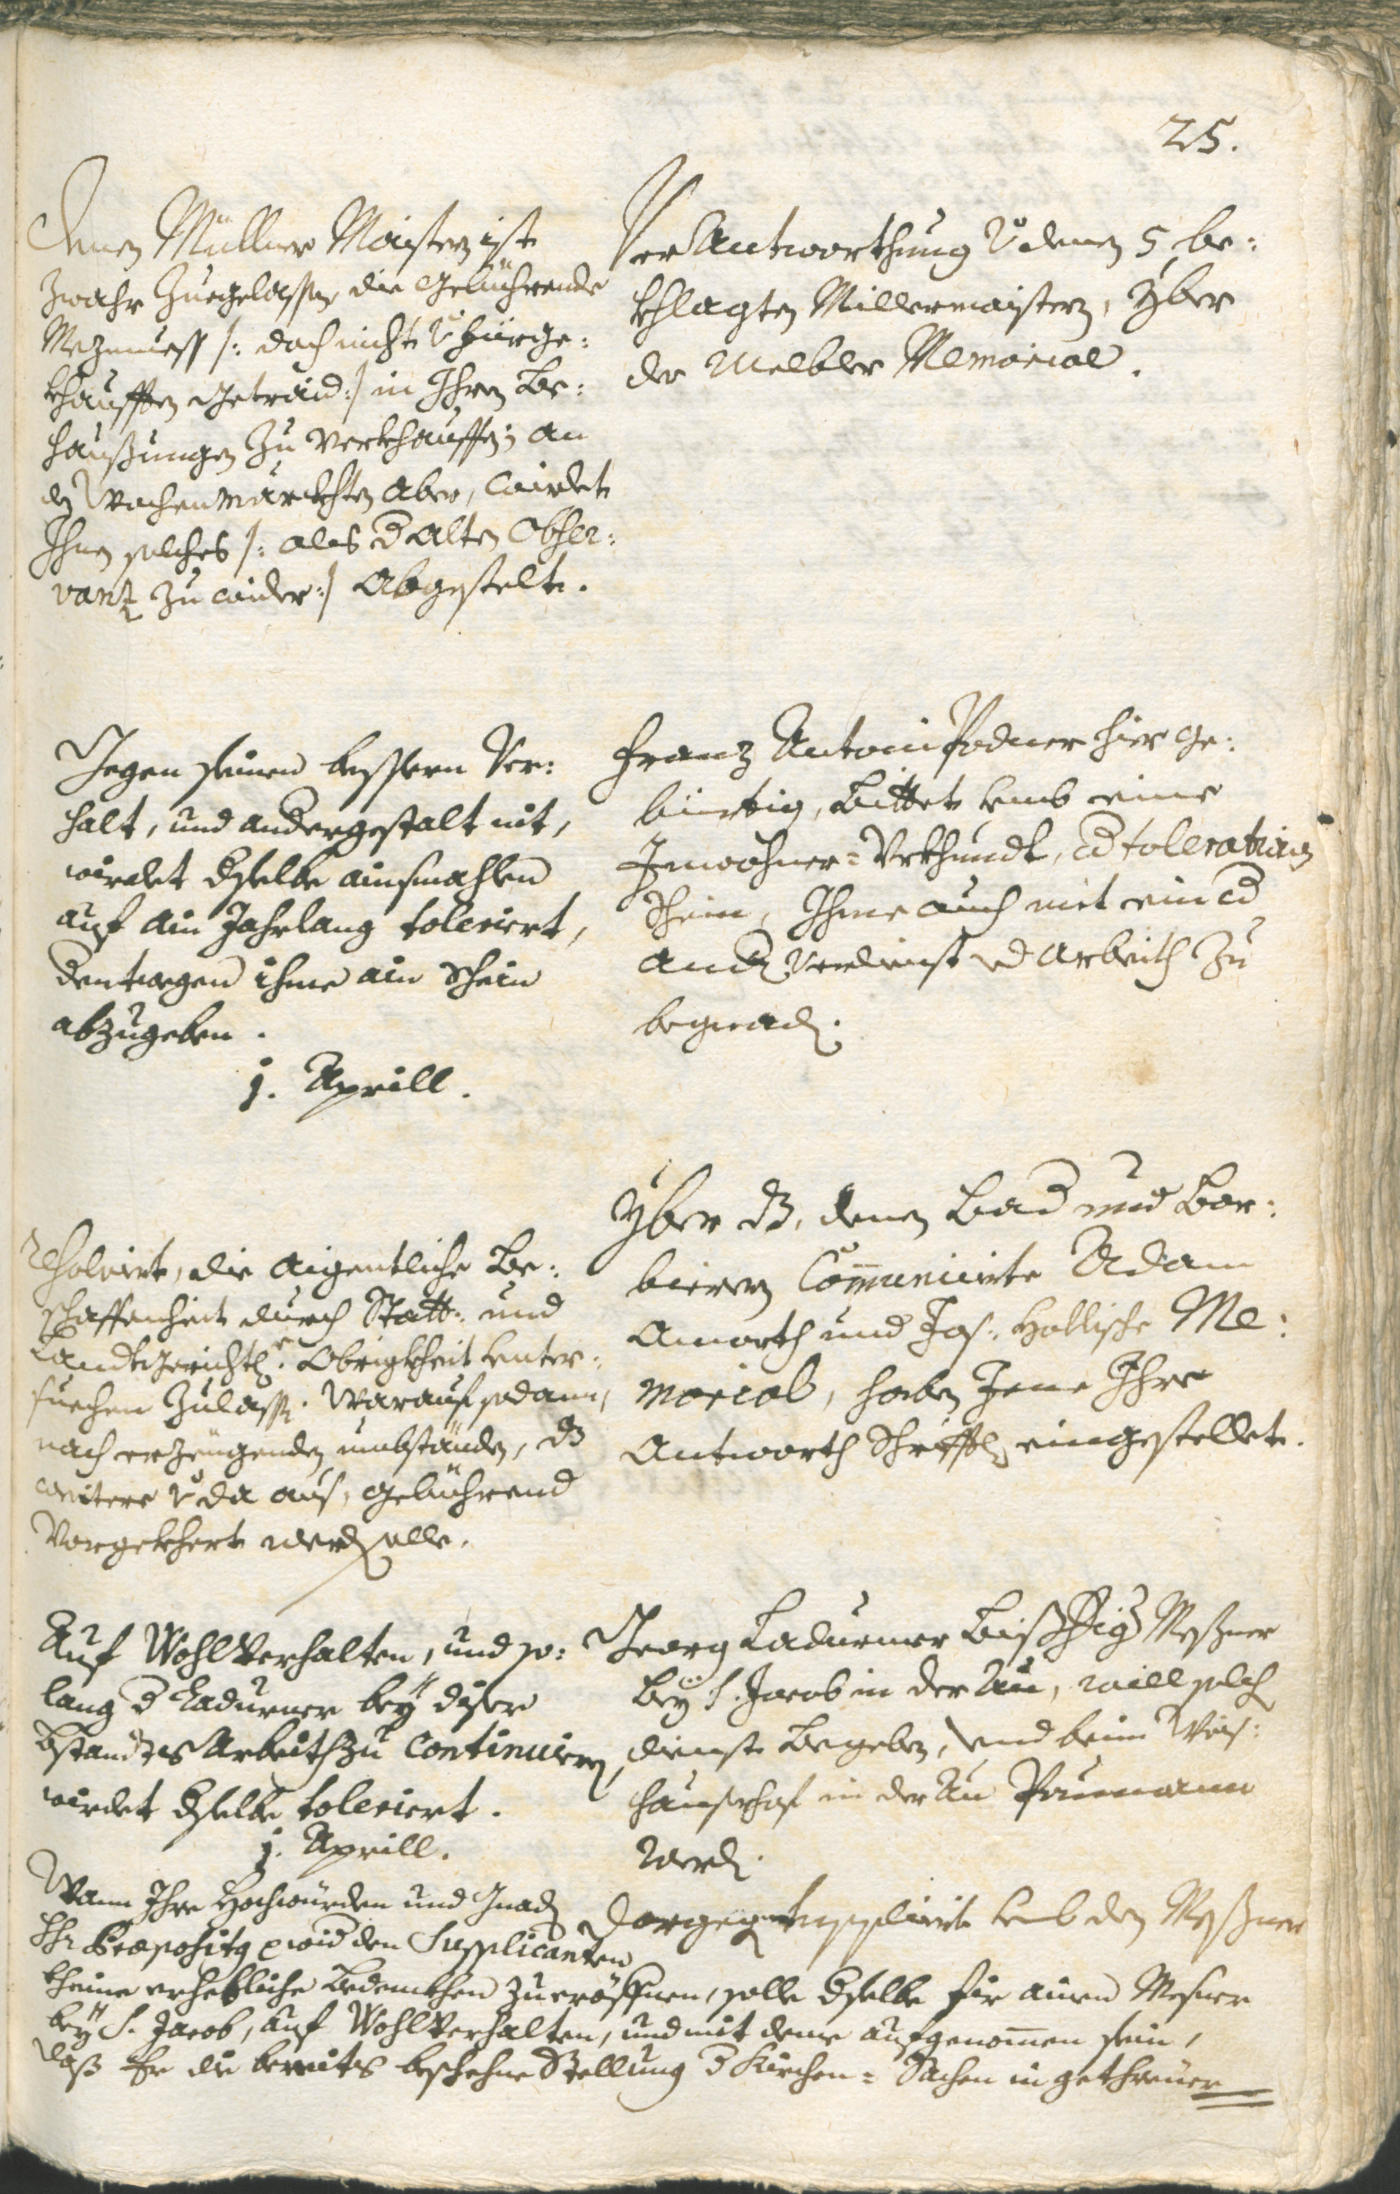 25.
Denen Müllner Maistern ist
zwahr Zuegelassen die Gebührende
Mezmuess /: doch nicht von hiergekhaufften
Getraid :/ in Ihren Be:
haußungen Zu verkhauffen; an
den Wochenmärckhten aber, wirdet
Ihnen solches /: als der alten Obser:
vantz zu wider :/ Abgestelt.
VerAntworthung von denen 5 be:
khlagten Millermaistern, Yber
der Melbler Memorial.
Gegen seinen bessern Ver:
halt, und andergestalt nit,
wirdet derselbe ainsmahlen
auf ain Jahrlang toleriert,
dentwegen ihme ain Schein
abzugeben.
1. Aprill.
Franz Antoni Podner hier ge:
bürtig, bittet umb eine
Inwohner=Urkhundt, oder tolerations
Schein, Ihme auch mit ein oder
andern Verdienst und Arbeith zu
begnaden.
Resolvirt, die aigentliche Be:
schaffenheit durch Statt: und
Landtgerichtl: Obrigkheit unter:
suechen Zulassen. Warauf sodann,
nach erzeugenden umbständen, das
weitere von da aus, gebührend
Vorgekhert werden solle.
Yber das, denen Bad und Bar:
bierern Communicirte Adam
Amorth und Jos: Hollische Me:
morial, haben Jene Ihre
Antworth Schrifftl: eingestellet.
Auf Wohlverhalten, und so:
lang der Ladurner bey diser
bstandts Arbeith zu continuiren,
wirdet derselbe toleriert.
1. Aprill.
Georg Ladurner bißhäriger Meßner
bey S. Jacob in der Au, will solch
dienst begeben, und beim Weis:
hauserhof in der Au Paumann
werden.
Wann Ihre Hochwürden und Gnaden
Hr. Praepositus wider den Supplicanten
kheine erhebliche bedenckhen zu eröffnen, solle derselbe für ainen Mesner
bey S. Jacob, auf Wohlverhalten, und mit deme aufgenommen sein,
daß Er die bereits beschehne Stellung der Kirchen=Sachen in gethreuer
Dargegen supplicirt umb den Meßner